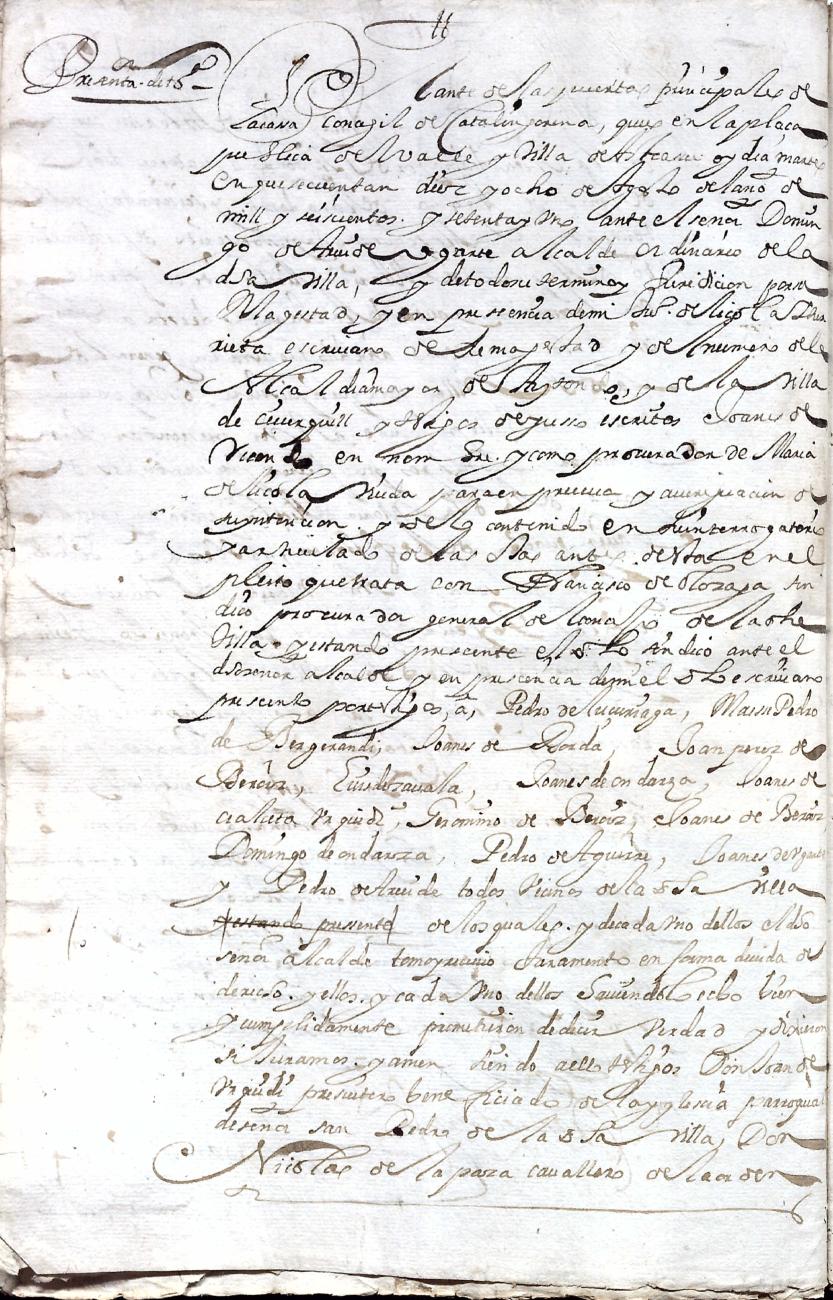 Presenta. de tºs
Yo
delante de las puertas prinçipales de
la cassa conzegil de Catalinperena, que es en la plaça
publica del valle y villa de Ataun oy dia martes
en que se cuentan diez y ocho de Agosto del año de
mill y seiscientos. y setenta y Uno ante el señor Domin
go de Arui de Ugarte alcalde ordinario de la
dha villa, y de todo su termino y Juridicion por su
Magestad, y en pressencia de mi
rieta escriuano de su magestad y del numero de la
Alcaldia mayor de Ayztondo, y de la Villa
de y testigos de yusso escritos Joanes de
en nombre. y como procurador de Maria
de Viuda para en prueua y aueriguacion de
su yntencion. y de lo contenido en su ynterrogatorio
y articulado de las ojas antes desta en el
pleito que trata con Francisco de Sin
dico procurador general del conçejo de la dha
Villa. y estando pressente el dho Sindico ante el
dho señor alcalde y en pressencia de mi el dho escriuano
presento por testigos, a, Pedro de Lucuriaga, Masse Pedro
de Bergerandi, Joanes de Borda, Joan perez de
Beraiz, Luis de zauala, Joanes de ondarza, Joanes de
Urquidi, Geronimo de Beraiz, Joanes de Beraiz
Domingo de ondarza, Pedro de Aguirre, Joanes de Ugarte
y Pedro de Arui de todos Vecinos de la dha Villa
y estando pressente de los quales. y de cada Uno dellos el dho
señor alcalde tomo y reciuio Juramento en forma deuida de
derecho. y ellos. y cada Uno dellos hauiendolo echo bien
y cumplidamente prometieron de decir Verdad y dixieron
si Juramos. y amen siendo a ello testigos Don Joan de
Urquidi presuitero beneficiado de la yglesia parroquial
de señor san Pedro de la dha Villa, Don
Nicolas de la paza cauallero de la orden